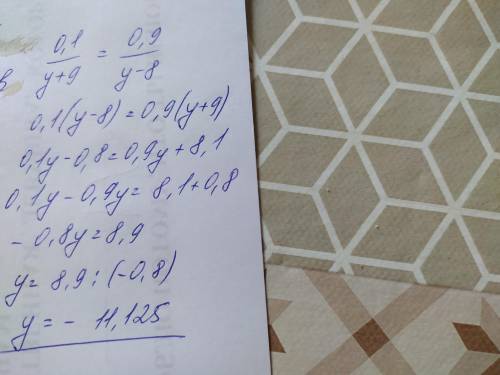 0,1/y+9 = 0,9/y-8
0,1(y-8)=0,9(y+9)
0,1y-0,8=0,9y+8,1
0,1y-0,9y=8,1+0,8
-0,8y=8,9
y=8,9:(-0,8)
y=-11,125